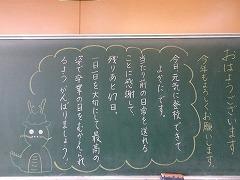 おはようございます
今年もよろしくお願いします。
今日元気に登校できて
よかったです。
当たり前の日常を送れる
ことに感謝して、
残りあと47日。
一日一日を大切にして最高の
姿で卒業の日をむかえられ
るようがんばりましょう。